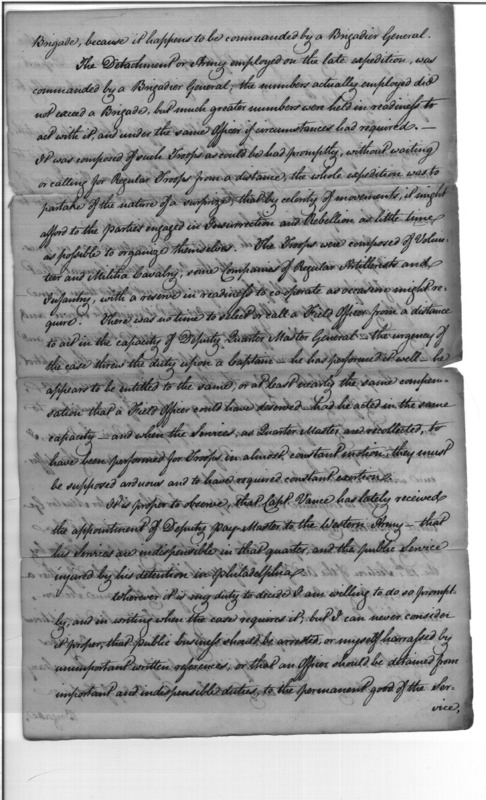 Brigade, because it happens to be commanded by a Brigadier General.
The Detachment or Army employed on the late expedition, was
commanded by a Brigadier General; the numbers actually employed did
not exceed a Brigade, but much greater numbers were held in readiness to
act with it, and under the same Officer if circumstances had required. —
It was composed of such Troops as could be had promptly, without waiting
or calling for Regular Troops from a distance, the whole expedition was to
partake of the nature of a surprize; that by celerity of movements, it might
afford to the parties engaged in Insurrection and Rebellion as little time
as possible to organize themselves. The Troops were composed of Volun-
teer and Militia Cavalry, some Companies of Regular Artillerists and
Infantry, with a reserve in readiness to co-operate as occasion might re-
quire. There was no time to select or call a Field Officer from a distance
to aid in the capacity of Deputy Quarter Master General — the urgency of
the case threw the duty upon a Captain — he has performed it well — he
appears to be entitled to the same, or at least nearly the same compen-
sation that a Field Officer could have deserved — had he acted in the same
capacity — and when the Services, as Quarter Master, are recollected, to
have been performed for Troops, in almost constant motion, they must
be supposed arduous and to have required constant exertions.
It is proper to observe, that Capt. Vance has lately received
the appointment of Deputy Pay Master to the Western Army — that
his Services are indispensible in that quarter, and the public Service
injured by his detention in Philadelphia.
Wherever it is my duty to decide I am willing to do so prompt-
ly, and in writing when the case requires it; but I can never consider
it proper, that public business should be arrested, or myself harrassed by
unimportant written references, or that an Officer should be detained from
important and indispensible duties, to the permanent good of the Ser-
vice,